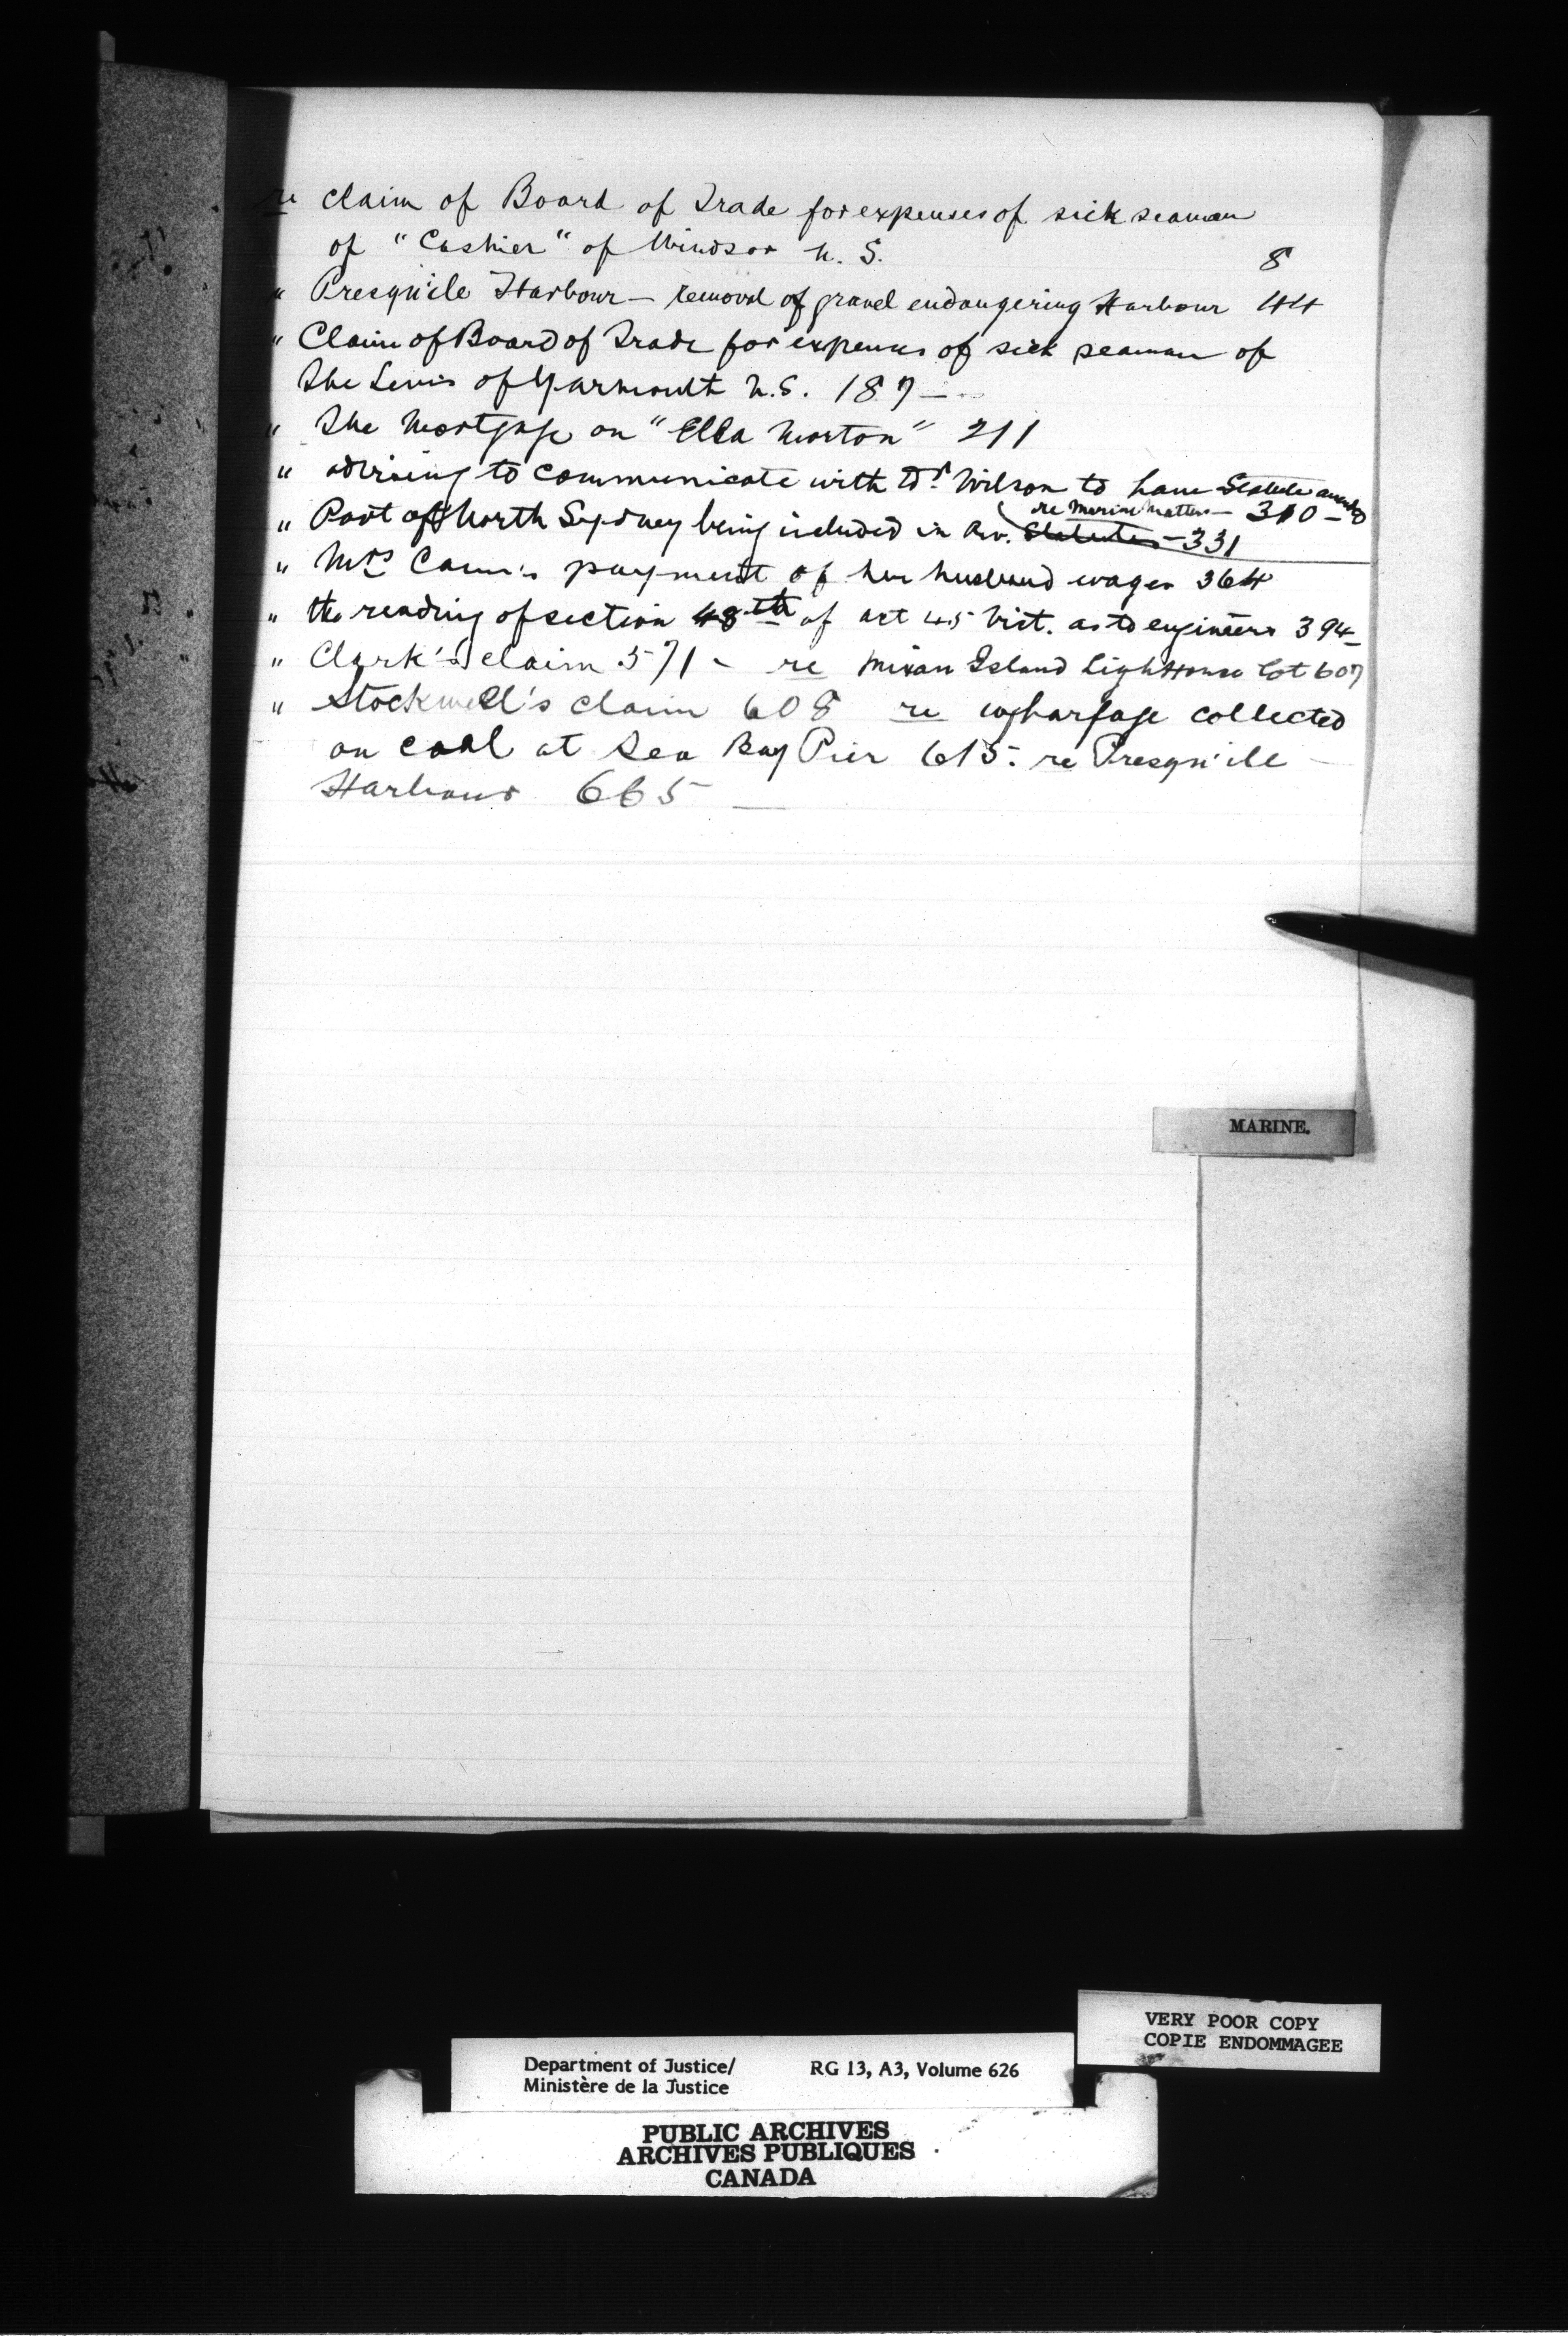 re claim of Board of Trade for expenses of sick seaman
of "Cashier" of Windsor N. S. 8
" Presqu'ile Harbour — removal of gravel endangering Harbour 44
" Claim of Board of Trade for expenses of sick seaman of
The Lewis of Yarmouth N.S. 187 —
" The Mortgage on "Ella Morton" 211
" advising to communicate with Dr Wilson to have Statute amended
re Marine Matters — 310 —
" Port of North Sydney being included in Rev. Statutes — 331
" Mrs payment of her husband wages 364
" the reading of section 48th of act 45 Vict. as to engineers 394
" Clark's claim 571 - re Island LightHouse lot 607
" Stockwell's claim 608 re wharfage collected
on coal at Sea Bay Pier 615. re Presqu'ile
Harbour 665 —
MARINE.
VERY POOR COPY
COPIE ENDOMMAGEE
Department of Justice/ RG 13, A3, Volume 626
Ministère de la Justice
PUBLIC ARCHIVES
ARCHIVES PUBLIQUES
CANADA